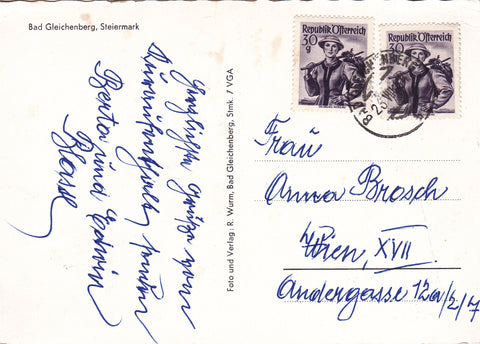 Bad Gleichenberg, Steiermark
Herzlichste Grüße vom
senden
Berta und Edwin
Klasse
Foto und Verlag: R. Wurm, Bad Gleichenberg, Stmk. 7 VGA
Republik Österreich
30
g
Republik Österreich
30
Frau
Anna Brosch
Wien, XVII
Andergasse 12a/2/7